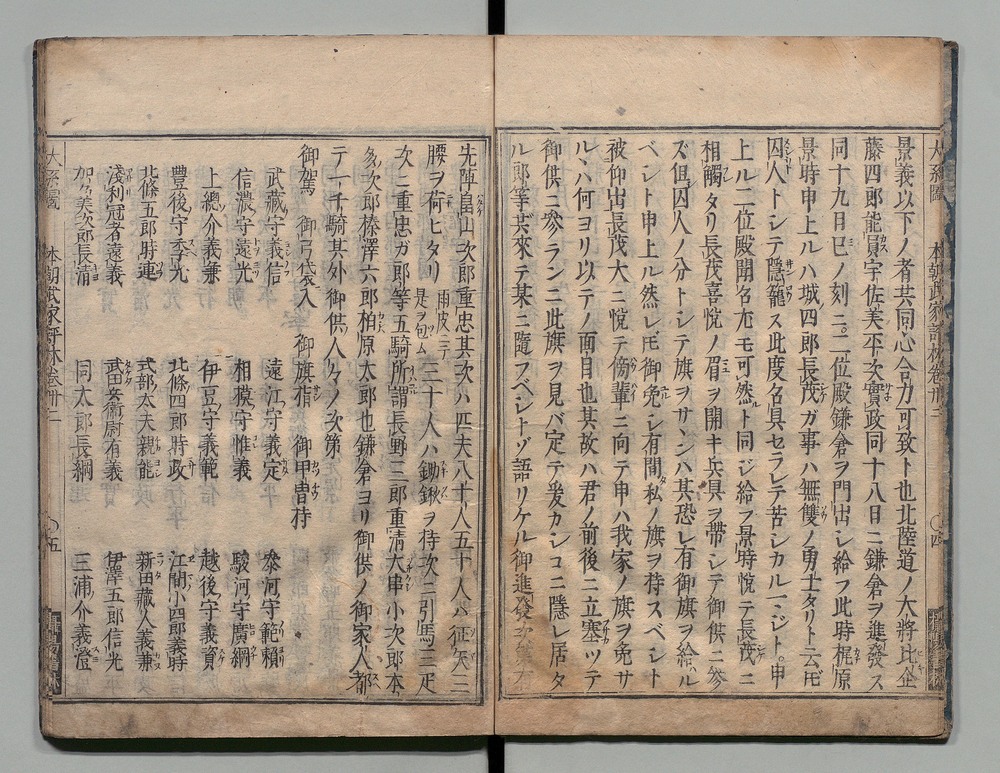 景義以下ノ者共同心合力可致ト也北陸道ノ大將比企
藤四郎能員宇佐美平次實政同十八日ニ鎌倉ヲ進發ス
同十九日巳ノ刻ニ二位殿鎌倉ヲ門出シ給フ此時梶原
景時申上ルハ城四郎長茂ガ事ハ無雙ノ勇士タリト云ヒ
囚人トシテ隱籠ス此度名具セラレテ苦シカルマジト申
上ル二位殿聞名尤モ可然ト同ジ給フ景時悅テ長茂ニ
相觸タリ長茂喜悅ノ眉ヲ開キ兵具ヲ帶シテ御供ニ參
ズ但囚人ノ分トシテ旗ヲサシハ其恐レ有御旗ヲ給ハル
ベシト申上ル然レ𪜈御免シ有間私ノ旗ヲ持スベシト
被仰出長茂大ニ悅テ傍輩ニ向テ申ハ我家ノ旗ヲ免サ
ルハ何ヨリ以テノ面目也其故ハ君ノ前後ニ立塞ツテ
御供ニ參ランニ此旗ヲ見バ定テ爰カシコニ隱レ居タ
ル郎等共來テ某ニ隨フベシトゾ語リケル御進發
大系圖 本朝武家評林卷卅二 〇四
先陣畠山次郎重忠其次ハ匹夫八十人五十人ハ征矢三
腰ヲ荷ヒタリ雨皮ニテ是ヲ包ム三十人ハ鋤鍬ヲ持次ニ引馬三疋
次ニ重忠ガ郎等五騎所謂長野三郎重清大串小次郎本
多次郎榛澤六郎柏原太郎也鎌倉ヨリ御供ノ御家人都
テ一千騎其外御供人々ノ次第
御駕 御弓袋入 御旗指 御甲冑持
武藏守義信 遠江守義定 參河守範賴
信濃守遠光 相摸守惟義 駿河守廣綱
上總介義兼 伊豆守義範 越後守義資
豐後守季光 北條四郎時政 江間小四郎義時
北條五郎時連 式部大夫親能 新田藏人義兼
淺利冠者遠義 武田兵衞尉有義 伊澤五郎信光
加々美次郎長清 同太郎長綱 三浦介義澄
大系圖 本朝武家評林卷卅二 〇五